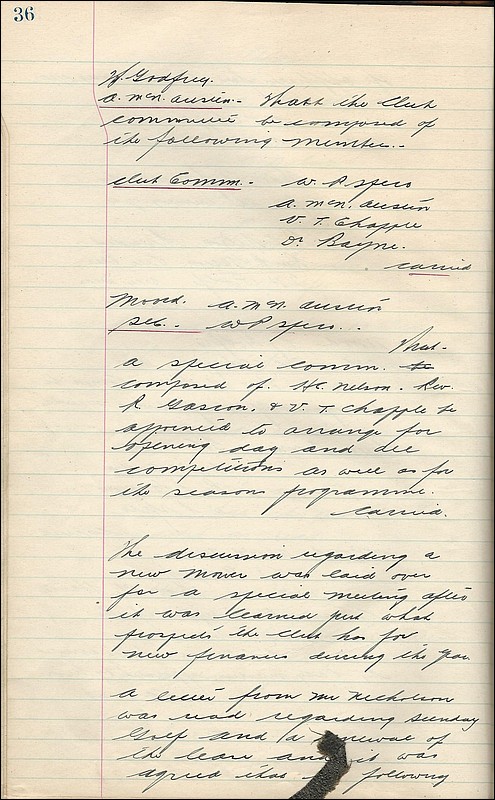 36
W. Godfrey.
A. McN. Austin. - That the Club
committee be composed of
the following members. -
Club Comm. - W. P Spero
A. McN. Austin
V. T. Chapple
Dr Bayne.
carried
Moved. A. McN. Austin
Sec. - W P Spero. . .
That -
a special comm. to
composed of. H.C. Nelson. Rev.
R. Gascon, & V. T. Chapple be
appointed to arrange for
opening day and all
competitions as well as for
the seasons programme.
Carried.
The discussion regarding a
new mower was laid over
for a special meeting after
it was learned just what
prospects the Club has for
new finances during the year.
A letter from Mr Nicholson
was read regarding Sunday
Golf and a renewal of
the lease and it was
agreed that following